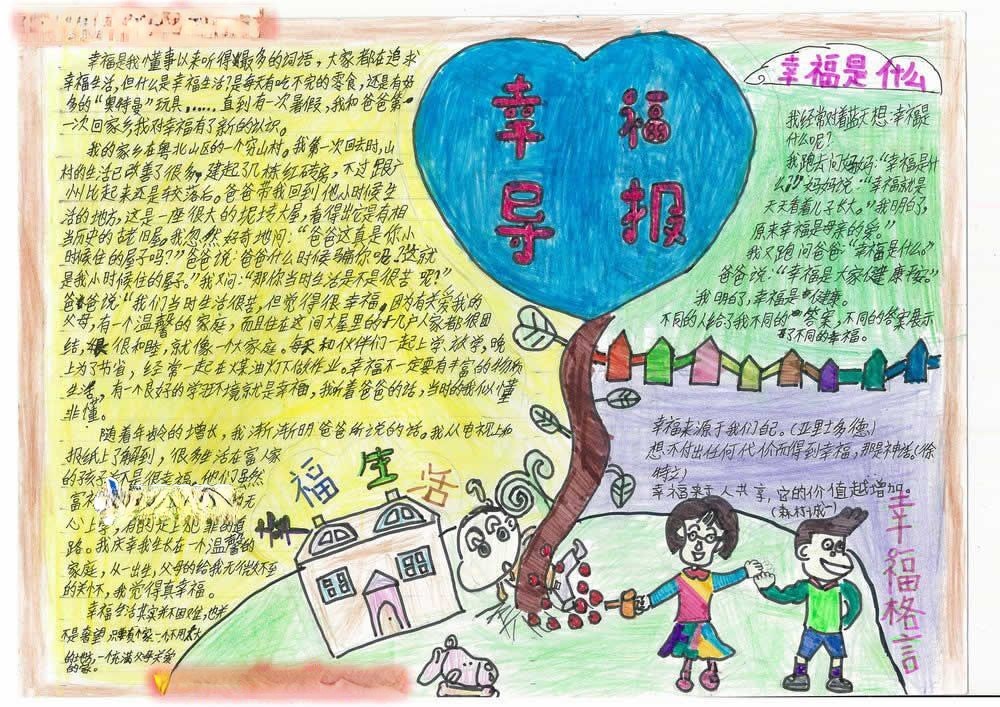 幸福是我懂事以来听得最多的词语，大家都在追求
幸福生活，但什么是幸福生活？是每天有吃不完的零食，还是有好
多的“奥特曼”玩具……直到有一次暑假，我和爸爸第
一次回家乡我对幸福有了新的认识。
我的家乡在粤北山区的一个穷山村。我第一次回去时，山
村的生活已改善了很多，建起了几栋红砖房，不过跟广
州比起来还是较落后。爸爸带我回到他小时候生
活的地方，这是一座很大的泥坊大屋，看得出它是有相
当历史的古老旧屋。我忽然好奇地问：“爸爸这真是你小
时候住的屋子吗？”爸爸说：“爸爸什么时候骗你呢？这就
是我小时候住的屋子。”我又问：“那你当时生活是不是很苦呢？”
爸爸说：“我们当时生活很苦，但觉得很幸福。因为有关爱我的
父母，有一个温馨的家庭，而且住在这间大屋里的十几户人家都很团
结，很和睦，就像一个大家庭。每天和伙伴们一起上学、放学，晚
上为了节省，经常一起在煤油灯下做作业。幸福不一定要有丰富的物质
生活，有一个良好的学习环境就是幸福，我听着爸爸的话，当时的我似懂
非懂。
随着年龄的增长，我渐渐明爸爸所说的话。我从电视上和
报纸上了解到，很多生活在富人家
的孩子不是很幸福，他们虽然
富
人上学，有的走上犯罪的道
路。我庆幸我生长在一个温馨的
家庭，从一出生，父母的给我无微不至
的关怀，我觉得真幸福。
幸福生活其实并不困难，也并
不是奢望，只要有个家一个不用太大
的地方，一个充满父母关爱
的家。
幸福生活
幸福
导报
幸福是什么
我经常对着蓝天想：幸福是
什么呢？
我跑去问妈妈：“幸福是什
么？”妈妈说：“幸福就是
天天看着儿子长大。”我明白了，
原来幸福是母亲的爱。”
我又跑问爸爸：“幸福是什么。”
爸爸说：“幸福是大家健康平安。”
我明白了，幸福是健康。
不同的人给了我不同的答案，不同的答案展示
了不同的幸福。
幸福来源于我们自己。（亚里士多德）
想不付出任何代价而得到幸福，那是神话。（徐
特立）
幸福来于人共享，它的价值越增加。
（森村诚一）
幸福格言